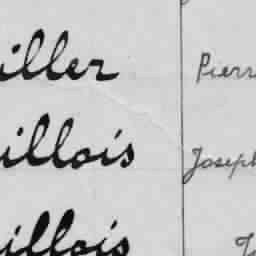 iller Pierr
illois Joseph
illois J